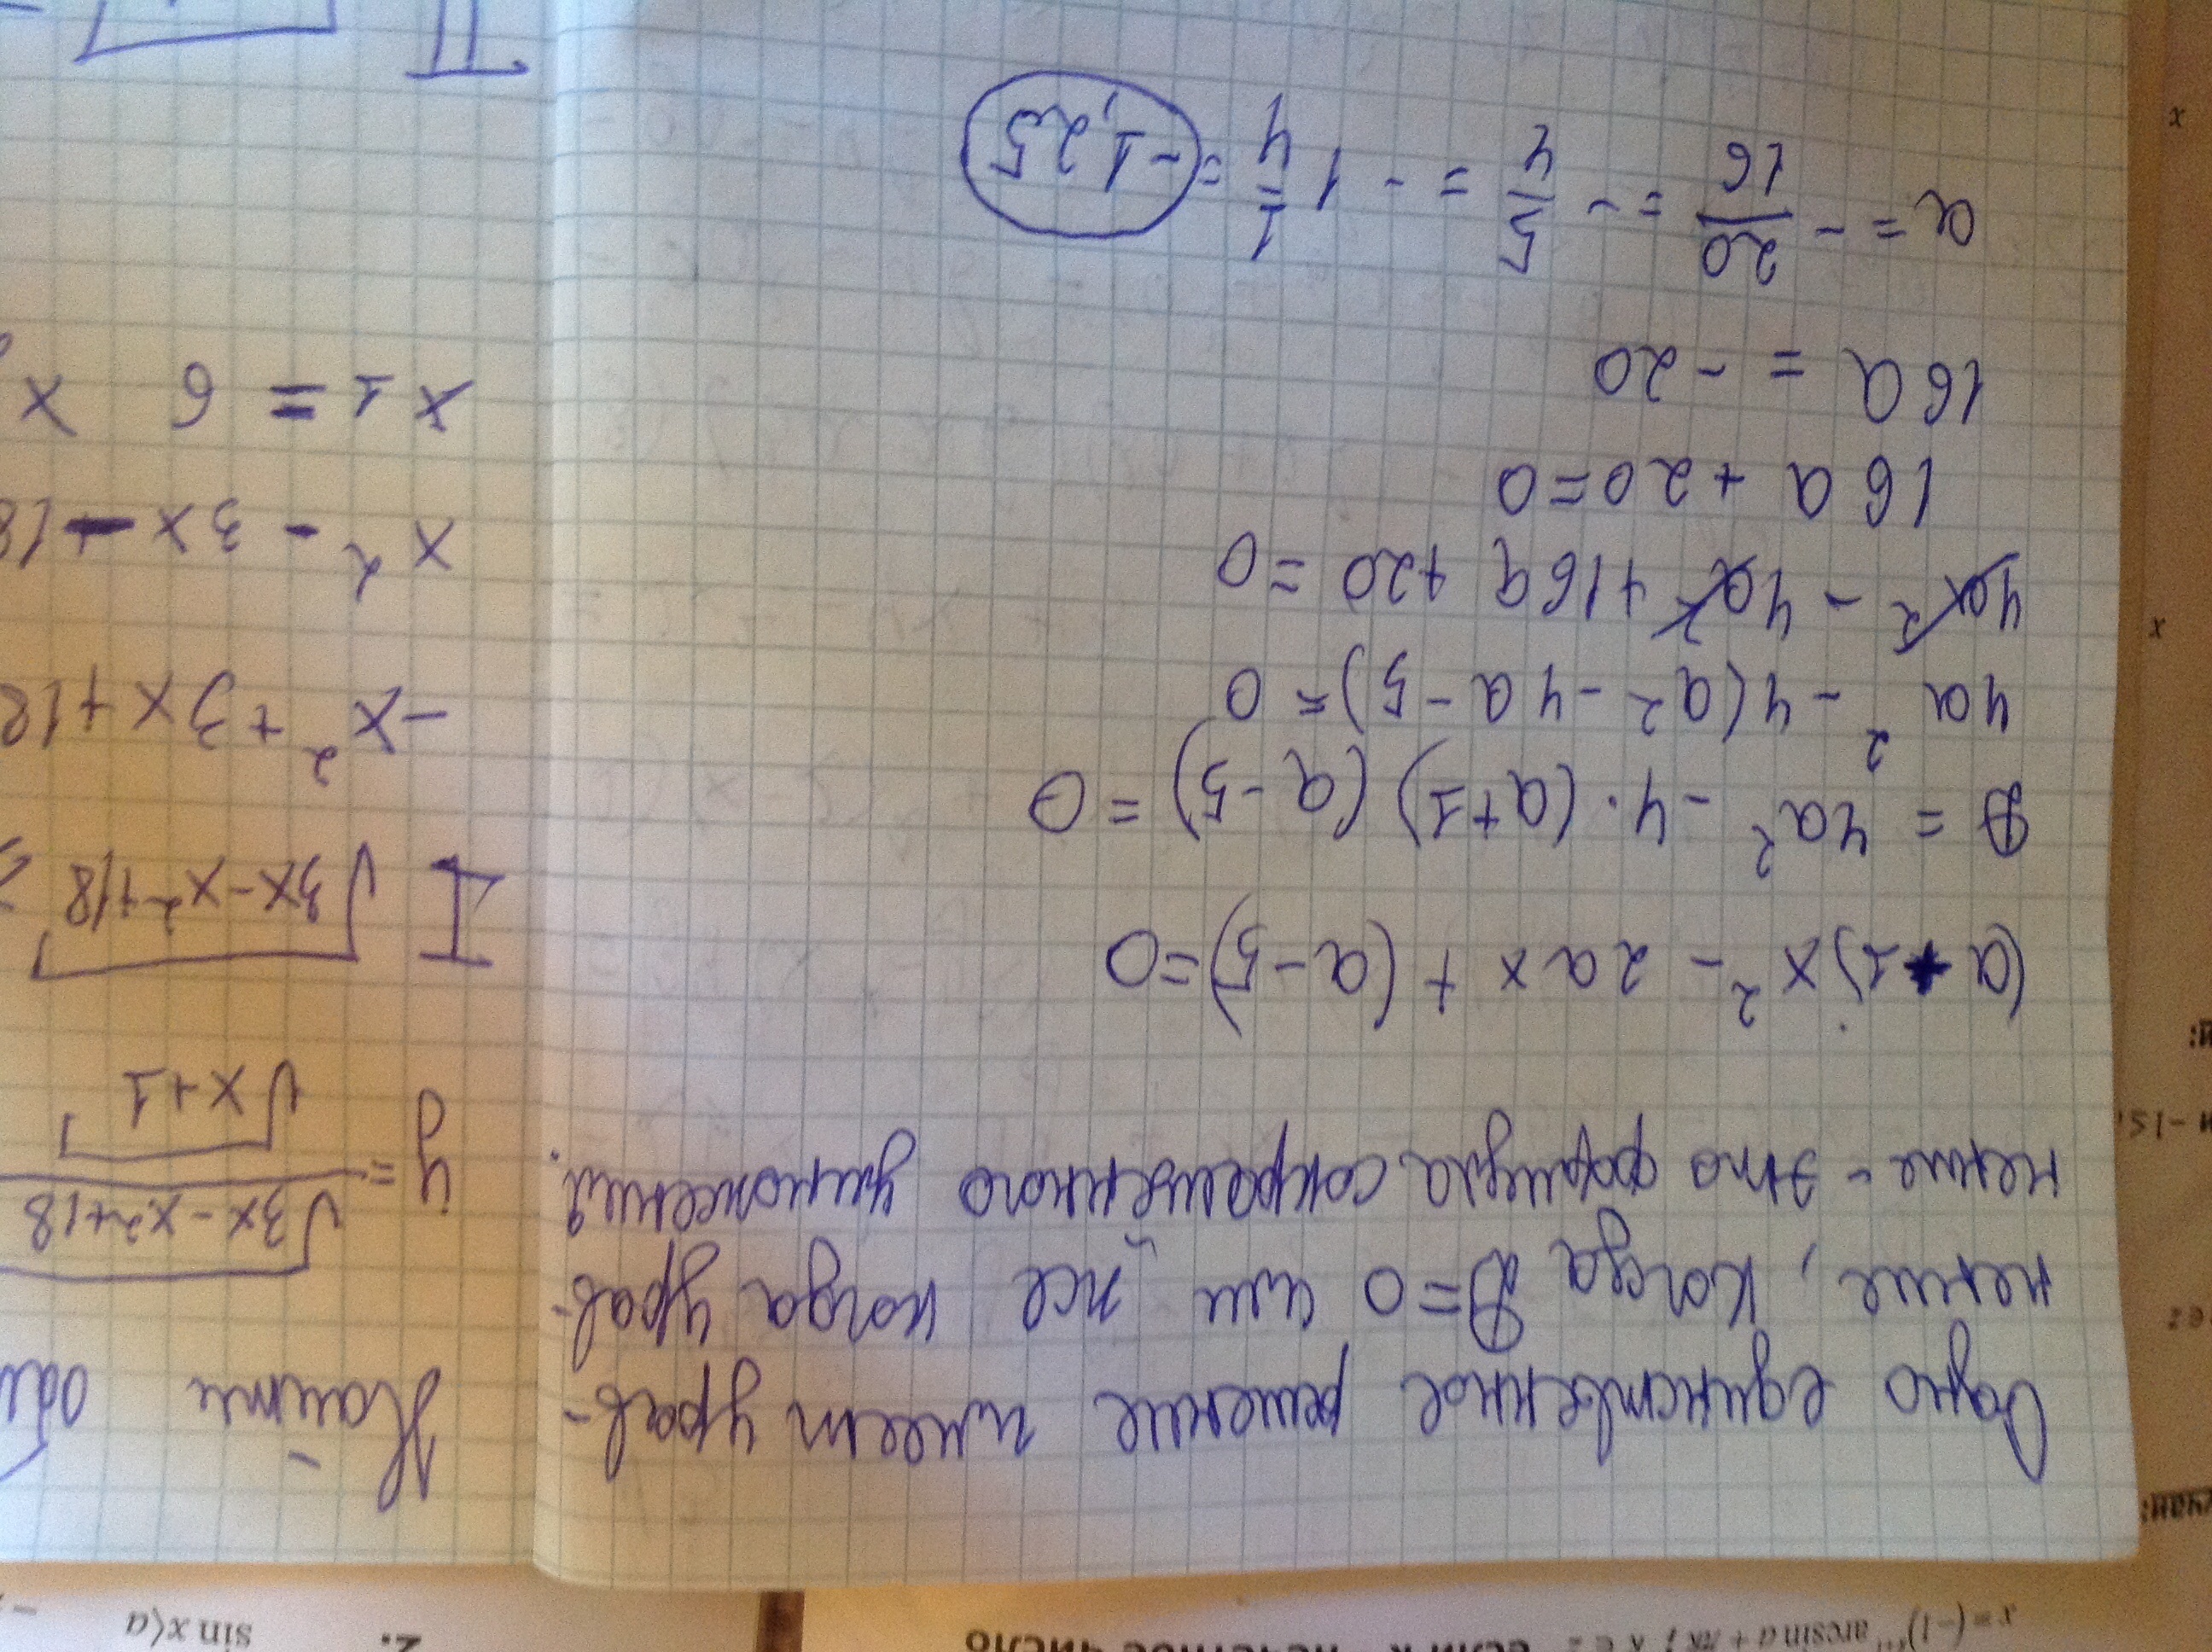 Одно единственное решение имеет урав-
нение, когда D=0 или же когда урав-
нение - это формула сокращенного умножения.
(a+1)x² - 2ax + (a-5)=0
D = 4a² - 4·(a+1)(a-5)=0
4a² - 4(a² - 4a - 5)=0
4a² - 4a² + 16a + 20 = 0
16a + 20=0
16a = -20
a = - 20/16 = - 5/4 = - 1 1/4 = -1,25
Найти
y = √3x-x²+18
√x+1
I √3x-x²+18
-x²+3x+18
x² - 3x - 18
x1 = 6 x
II
2.
sin x⟨a
если k
нечетное число
x=(-1)
arcsin a + πk; k ∈ z
x
x